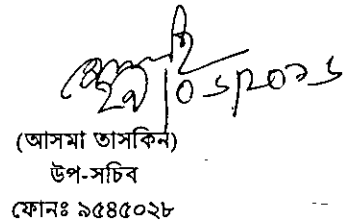 (আসমা তাসকিন)
উপ-সচিব
ফোনঃ ৯৫৪৫০২৮